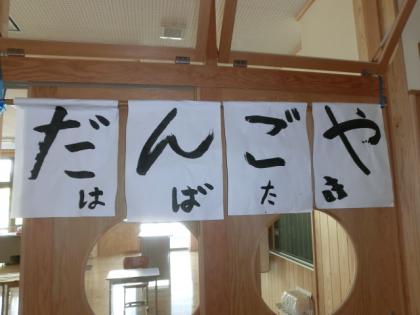 だんごや
はばたき